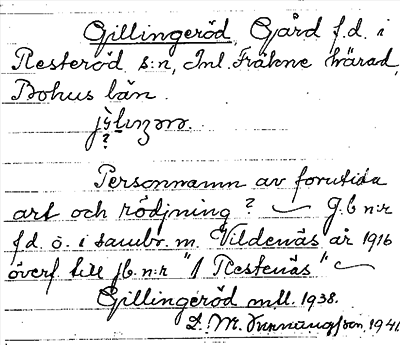 Gillingeröd, Gård f.d. i
Resteröd s:n, Inl. Fräkne härad,
Bohus län.
?
Personnamn av forntida
art och rödjning? — J.b n:r
f.d. ö. i samбr. m. Vildenäs år 1916
överf. till jb. n:r "1 Restenäs"
Gillingeröd m.ll. 1938.
1941